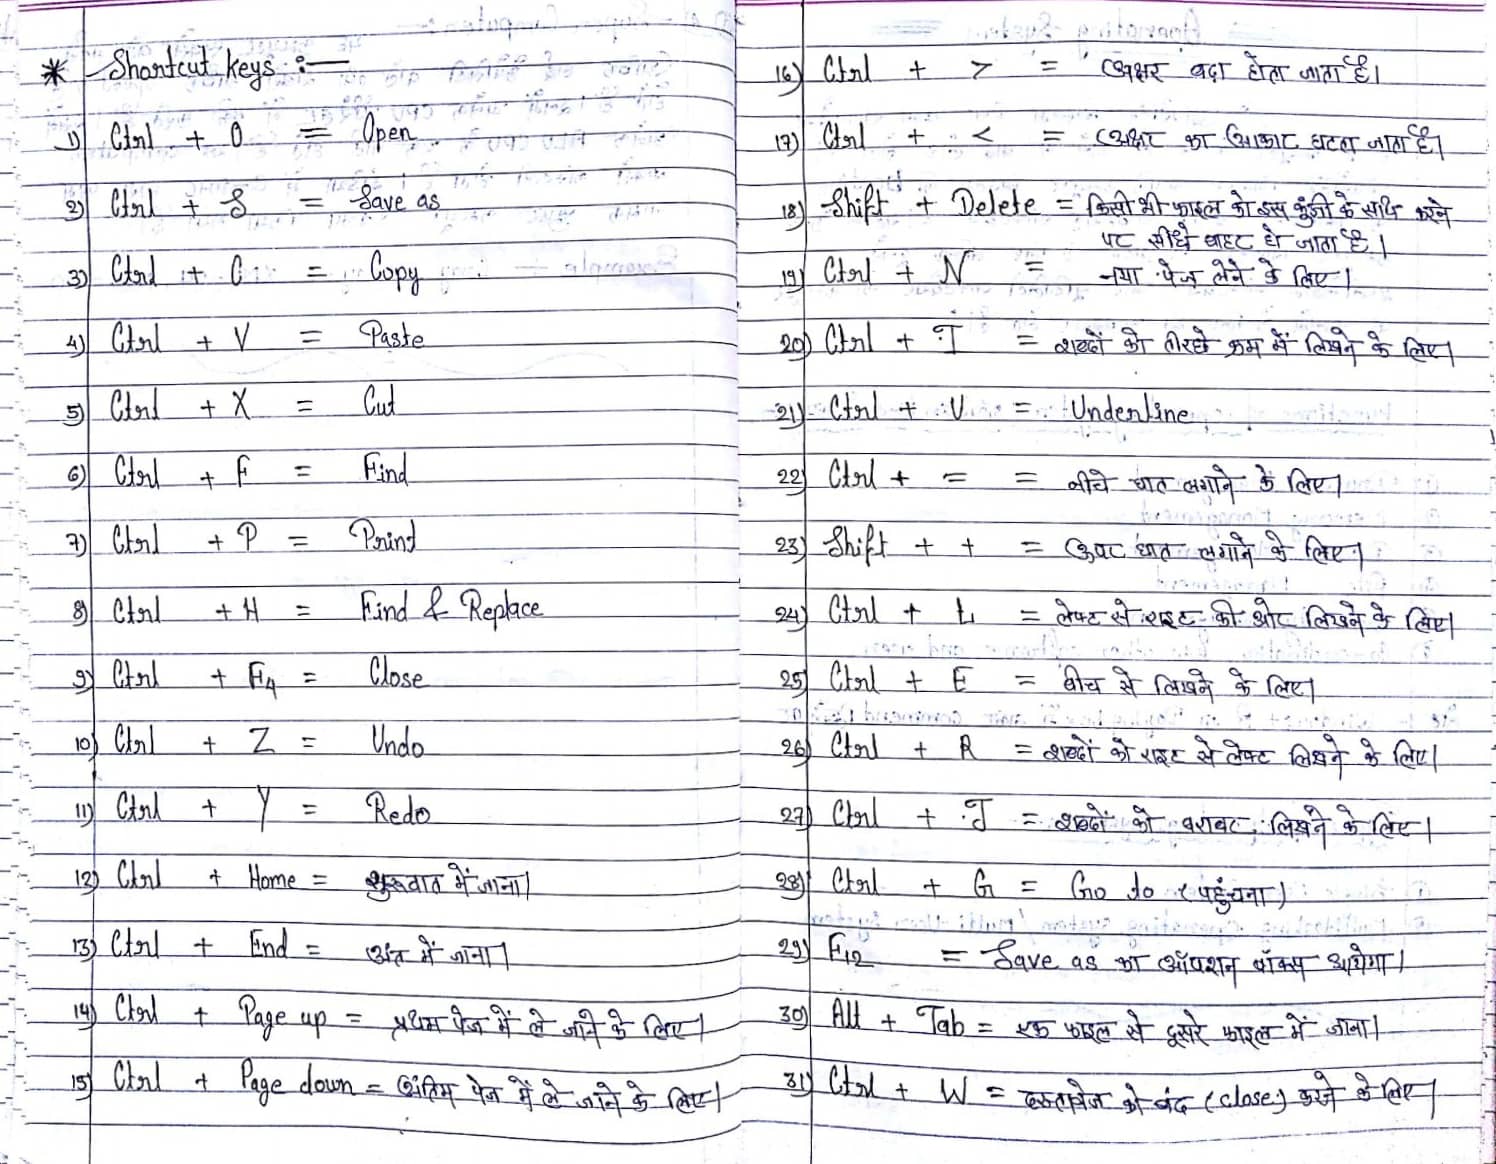 * Shortcut keys :—
1) Ctrl + O = Open
2) Ctrl + S = Save as
3) Ctrl + C = Copy
4) Ctrl + V = Paste
5) Ctrl + X = Cut
6) Ctrl + F = Find
7) Ctrl + P = Print
8) Ctrl + H = Find & Replace
9) Ctrl + F4 = Close
10) Ctrl + Z = Undo
11) Ctrl + Y = Redo
12) Ctrl + Home = शुरूवात में जाना।
13) Ctrl + End = अंत में जाना।
14) Ctrl + Page up = प्रथम पेज में ले जाने के लिए।
15) Ctrl + Page down = अंतिम पेज में ले जाने के लिए।
16) Ctrl + > = अक्षर बढा होता जाता है।
17) Ctrl + < = अक्षर का आकार घटता जाता है।
18) Shift + Delete = किसी भी फाइल को इस कुंजी के साथ करने
पर सीधे बाहर हो जाता है।
19) Ctrl + N = नया पेज लेने के लिए।
20) Ctrl + I = शब्दों को तीरछे क्रम में लिखने के लिए।
21) Ctrl + U = Underline
22) Ctrl + = = नीचे घात लगाने के लिए।
23) Shift + + = उपर घात लगाने के लिए।
24) Ctrl + L = लेफ्ट से राइट की ओर लिखने के लिए।
25) Ctrl + E = बीच से लिखने के लिए।
26) Ctrl + R = शब्दों को राइट से लेफ्ट लिखने के लिए।
27) Ctrl + J = शब्दों को बराबर लिखने के लिए।
28) Ctrl + G = Go to (पहुंचना)
29) F12 = Save as का ऑपशन बॉक्स आयेगा।
30) Alt + Tab = एक फाइल से दूसरे फाइल में जाना।
31) Ctrl + W = दस्तावेज को बंद (close) करने के लिए।